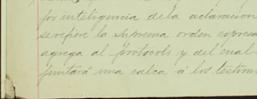 por inteligencia de la aclaracion
se refiere la Suprema orden espresa
agrega al protocolo y del cual
juntará una salca á los testim